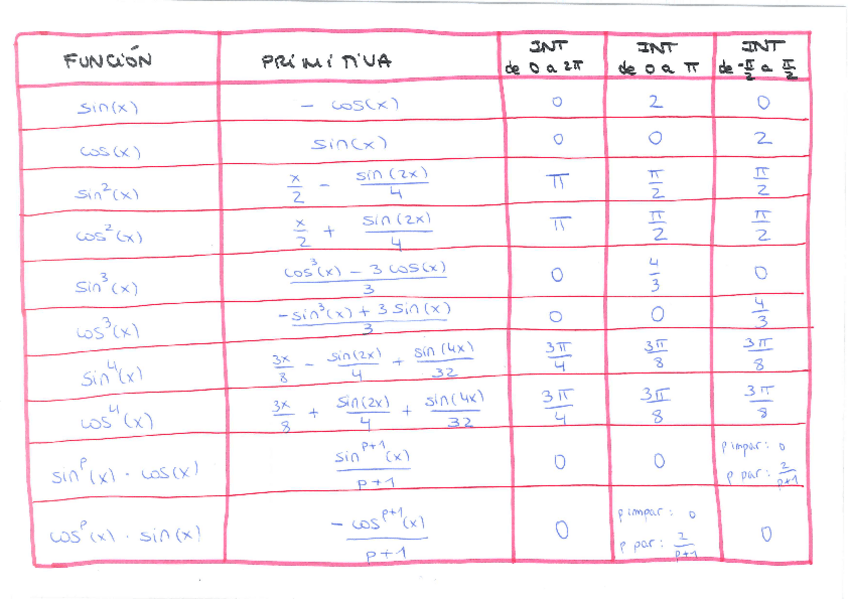 FUNCIÓN PRIMITIVA INT de 0 a 2π INT de 0 a π INT de -π/2 a π/2
sin(x) - cos(x) 0 2 0
cos(x) sin(x) 0 0 2
sin²(x) x/2 - sin(2x)/4 π π/2 π/2
cos²(x) x/2 + sin(2x)/4 π π/2 π/2
sin³(x) cos³(x) - 3 cos(x)/3 0 4/3 0
cos³(x) -sin³(x) + 3 sin(x)/3 0 0 4/3
sin⁴(x) 3x/8 - sin(2x)/4 + sin(4x)/32 3π/4 3π/8 3π/8
cos⁴(x) 3x/8 + sin(2x)/4 + sin(4x)/32 3π/4 3π/8 3π/8
sinᵖ(x) · cos(x) sinᵖ⁺¹(x)/p+1 0 0 p impar: 0 p par: 2/p+1
cosᵖ(x) · sin(x) -cosᵖ⁺¹(x)/p+1 0 p impar: 0 p par: 2/p+1 0